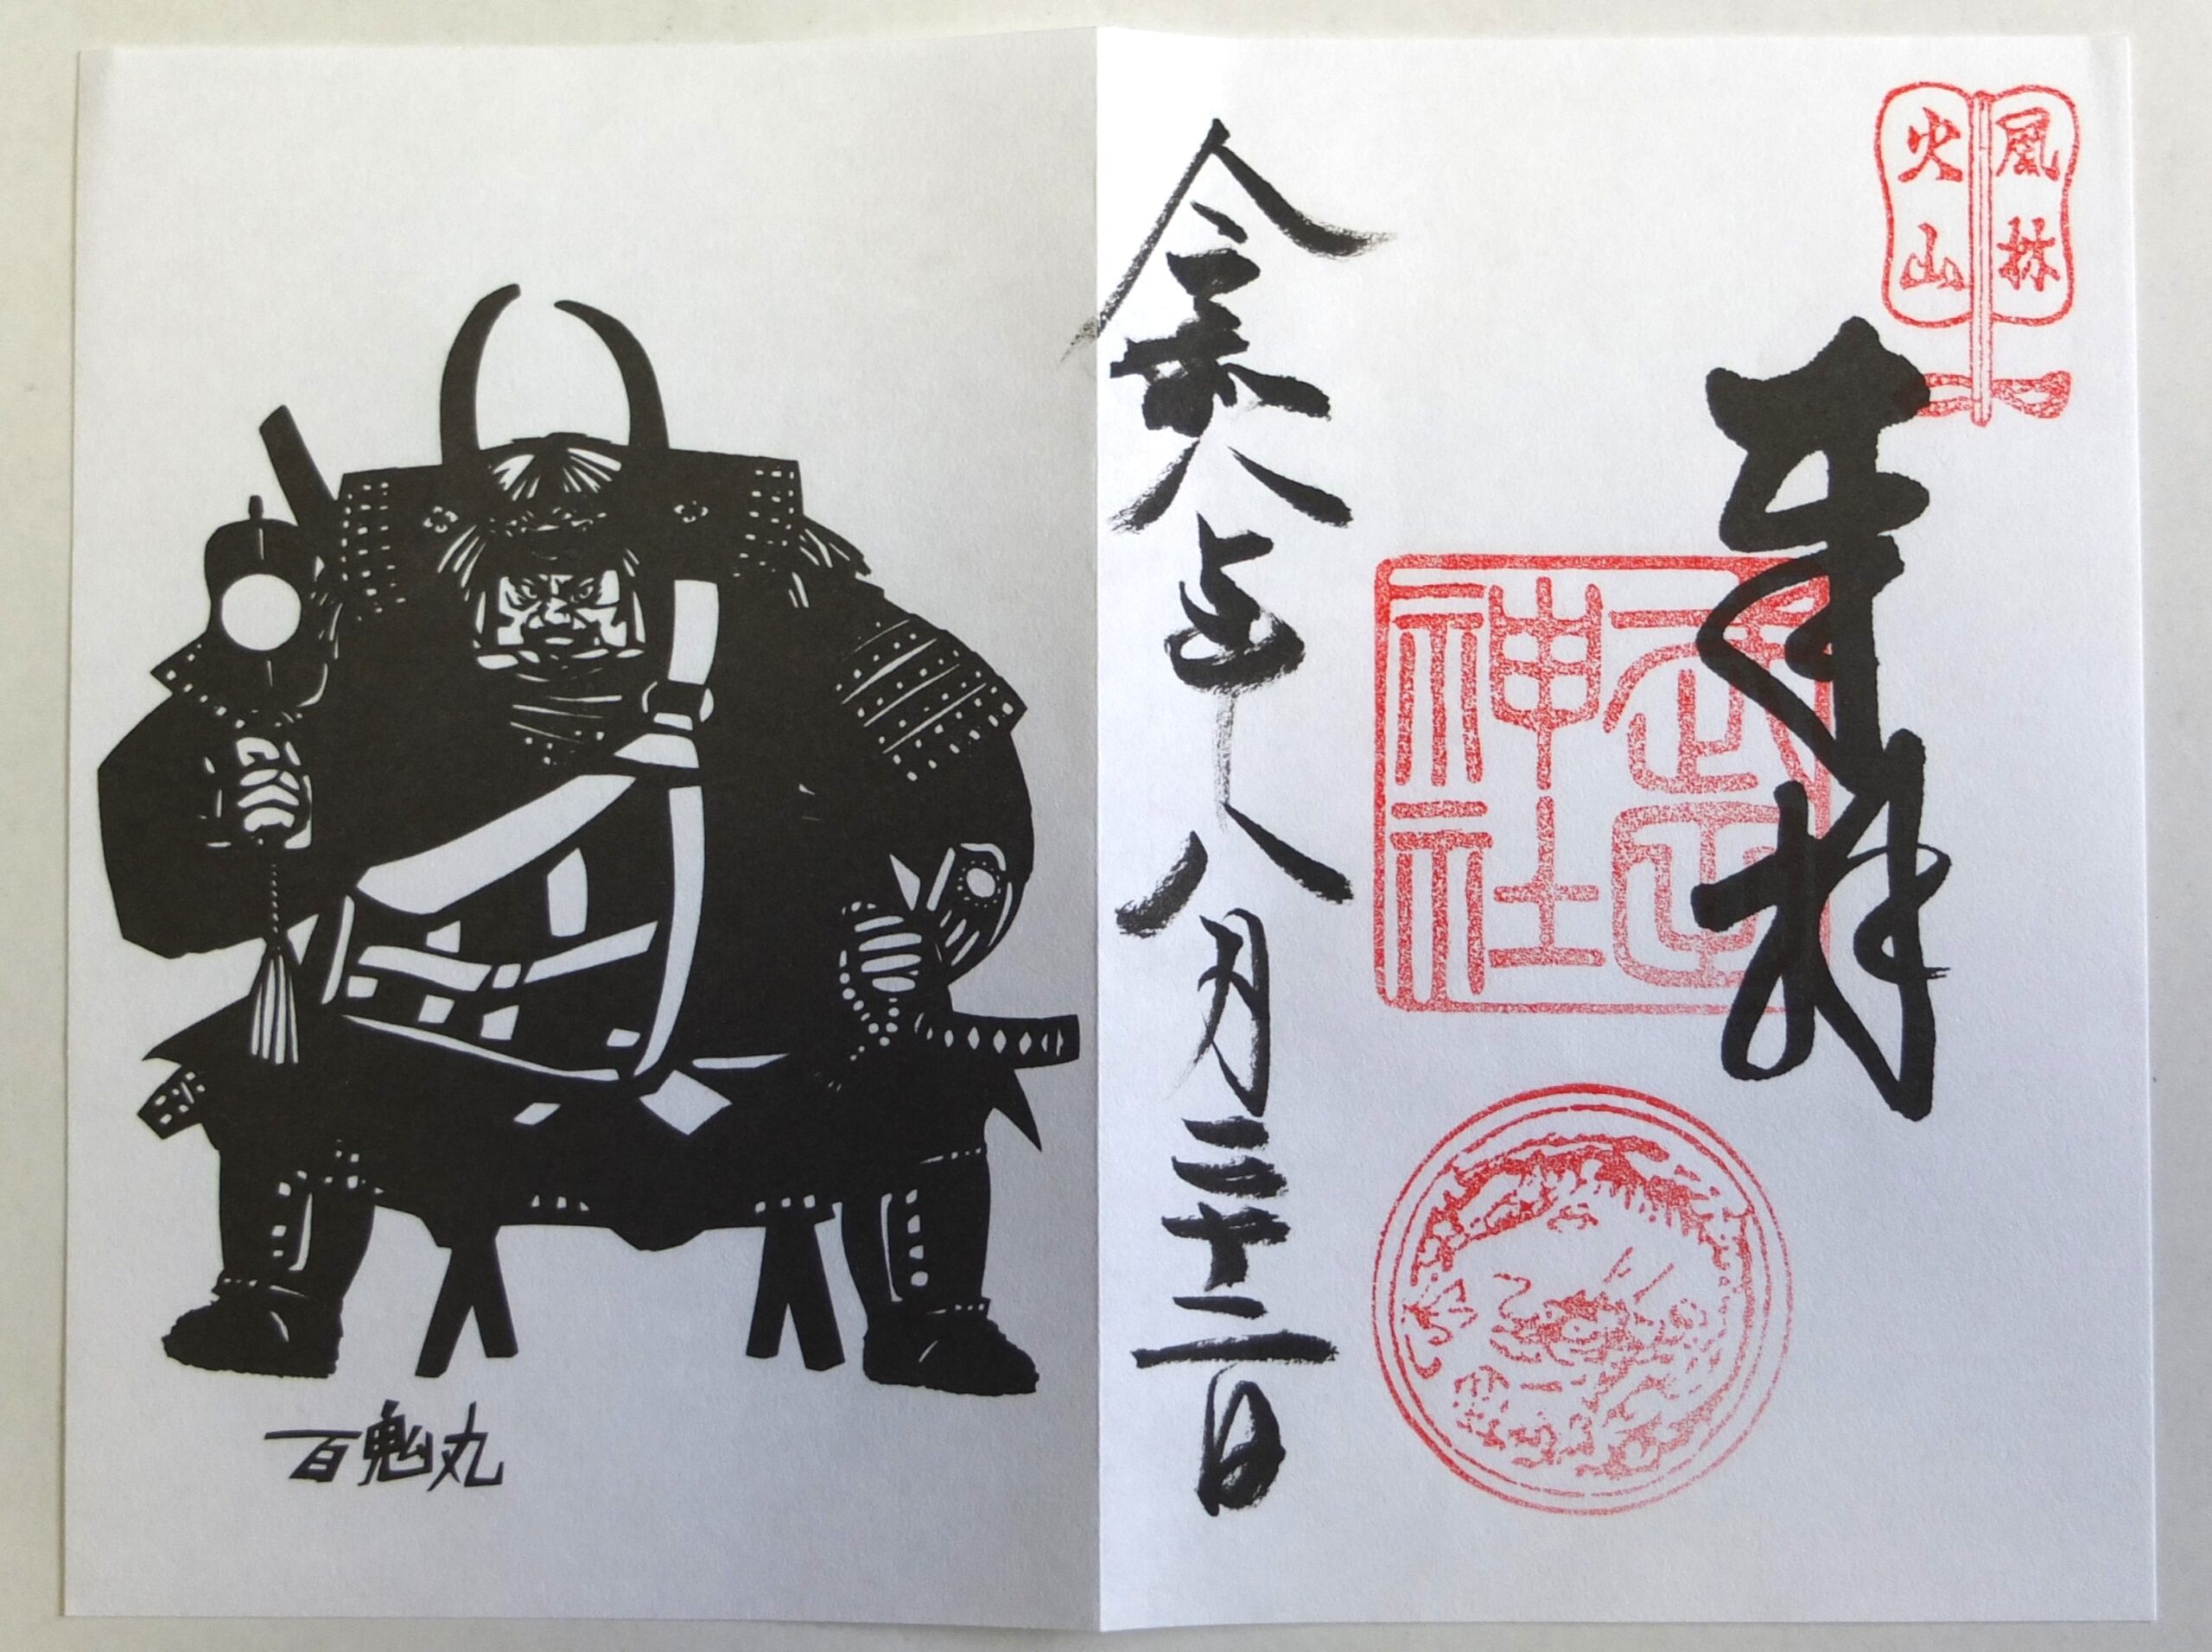 風林
火山
奉拝
武田
神社
令和年八月二十二日
百鬼丸